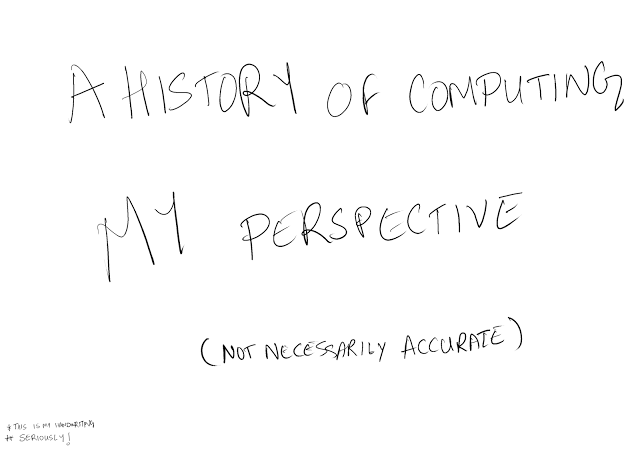 A HISTORY OF COMPUTING
MY PERSPECTIVE
(NOT NECESSARILY ACCURATE)
* THIS IS MY HANDWRITING
# SERIOUSLY!